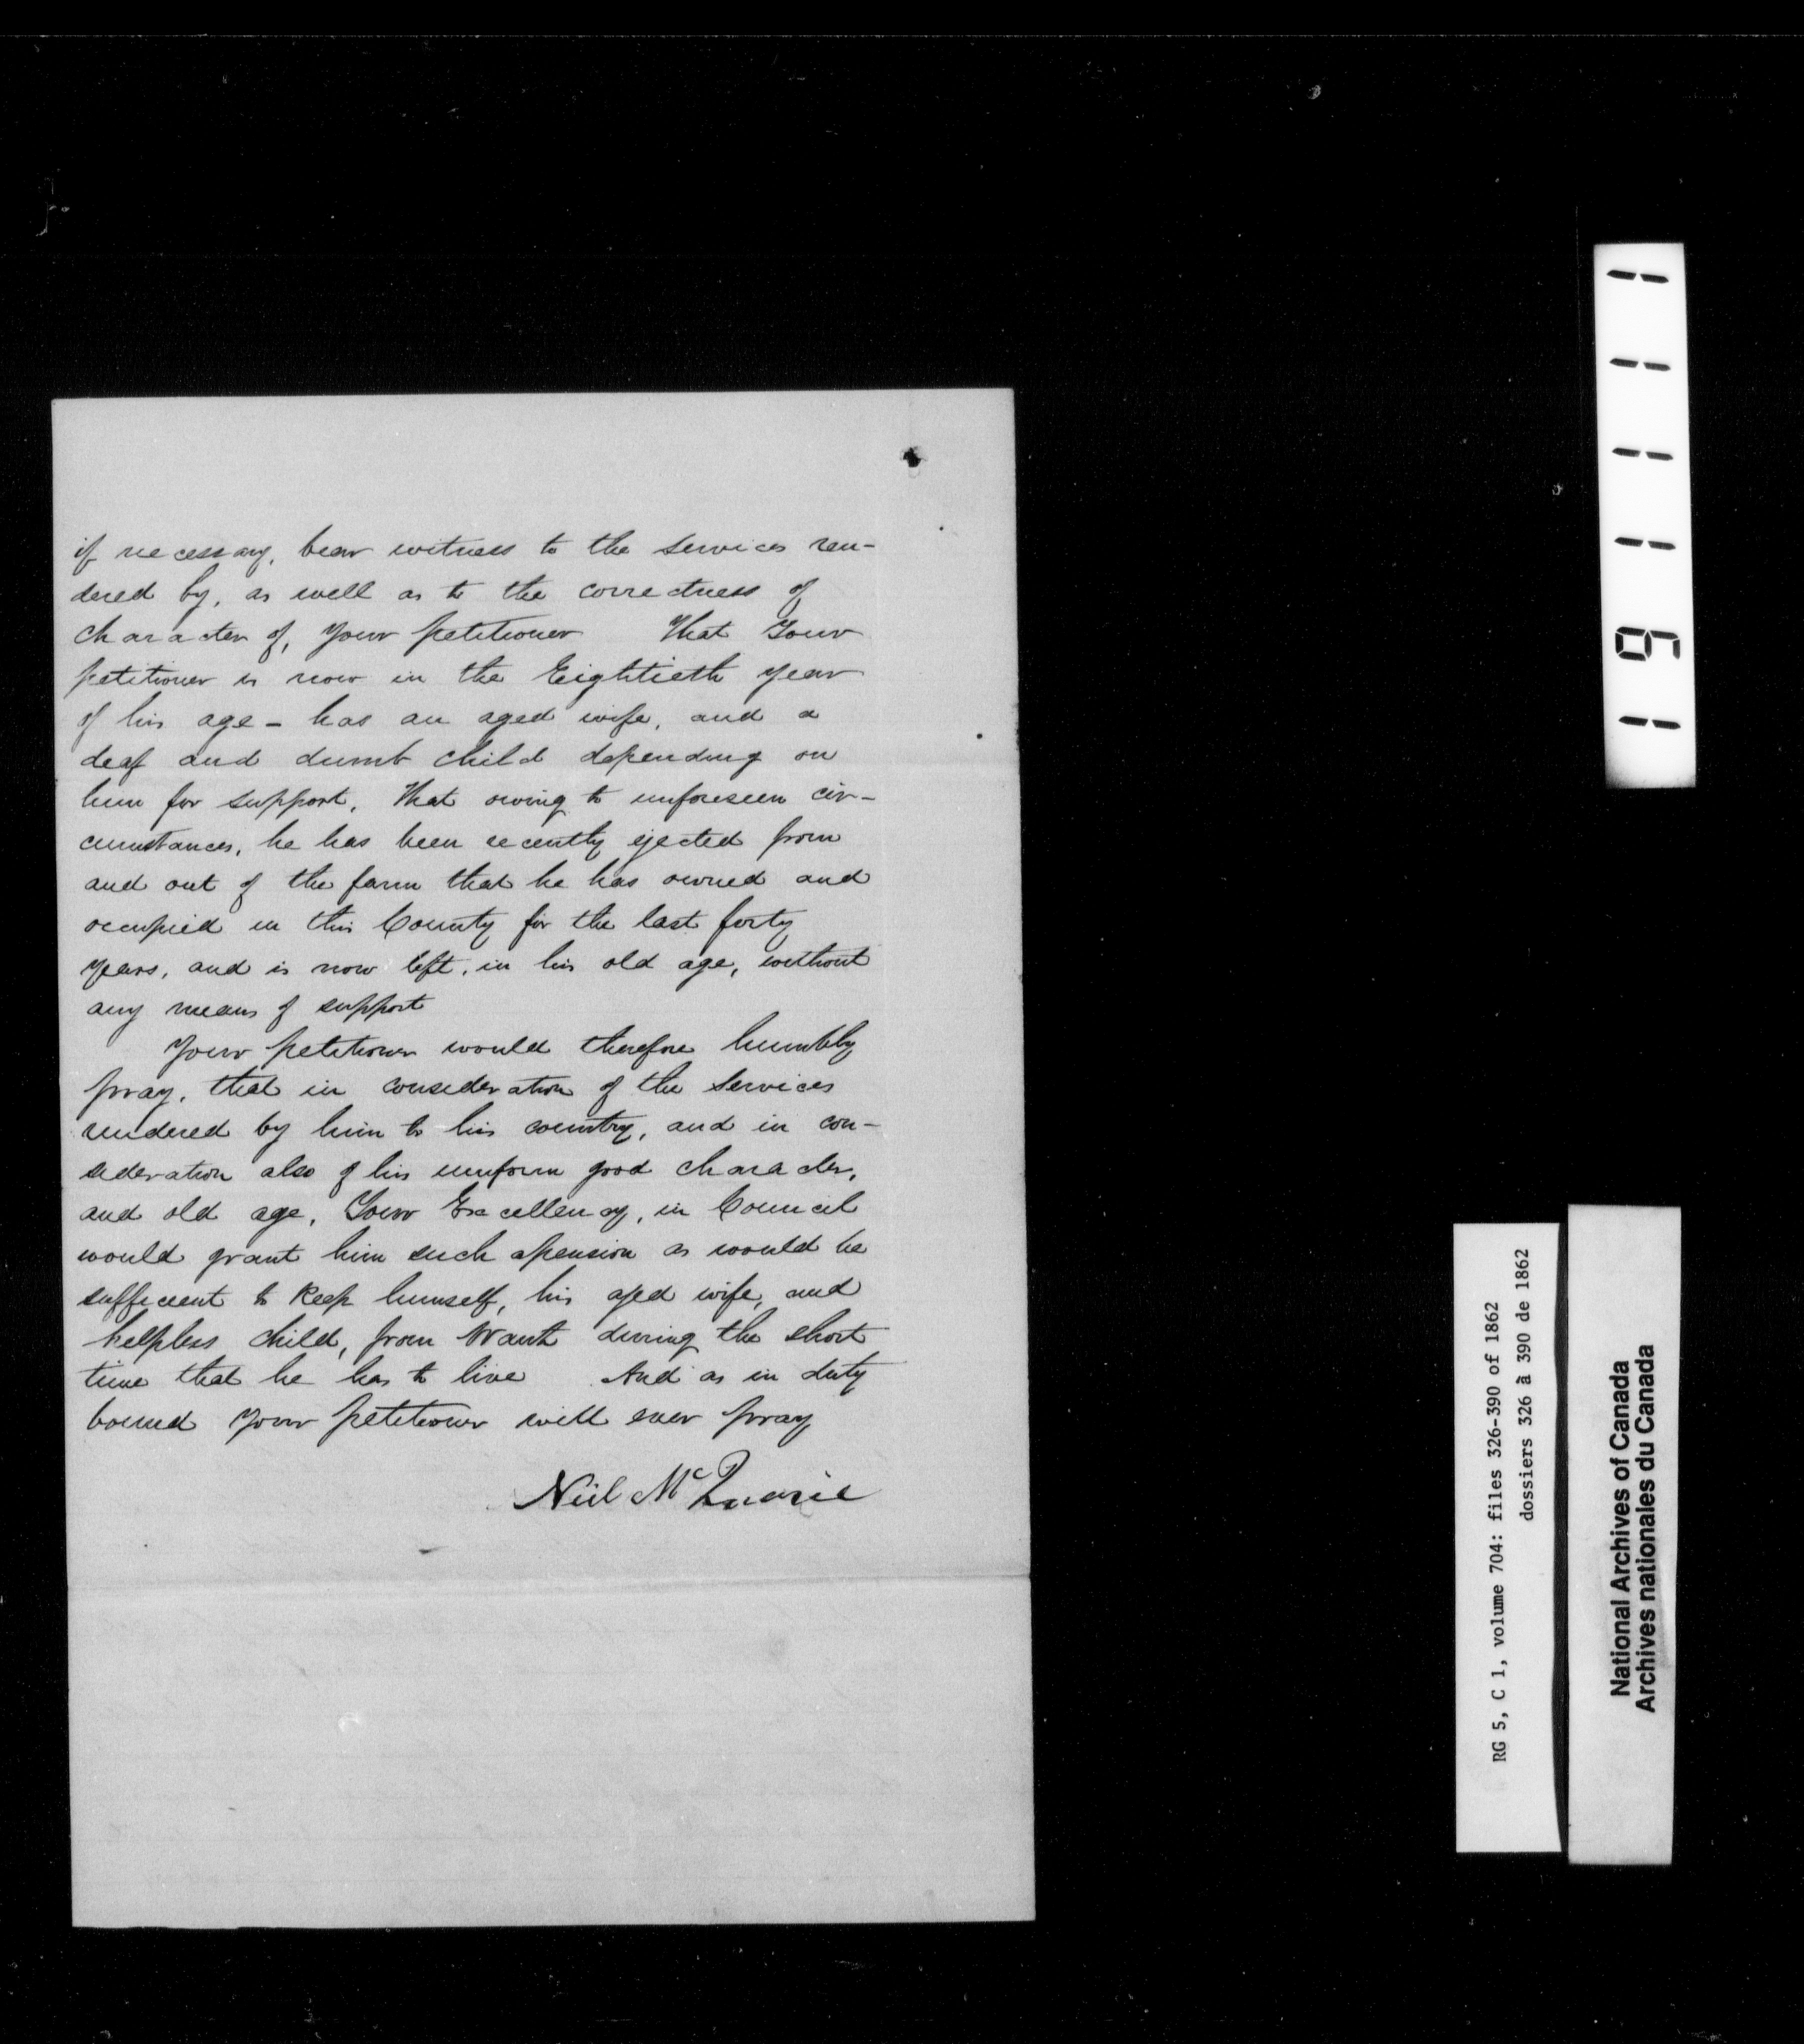 if necessary, bear witness to the services ren-
dered by, as well as to the correctness of
character of, your petitioner That Your
petitioner is now in the Eightieth year
of his age - has an aged wife, and a
deaf and dumb child depending on
him for support. That owing to unforeseen cir-
cumstances, he has been recently ejected from
and out of the farm that he has owned and
occupied in this County for the last forty
years, and is now left, in his old age, without
any means of support
Your petitioner would therefore humbly
pray, that in consideration of the services
rendered by him to his country, and in con-
sideration also of his uniform good character,
and old age, Your Excellency, in Council
would grant him such a pension as would be
sufficient to keep himself, his aged wife, and
helpless child, from Want during the short
time that he has to live And as in duty
bound your petitioner will ever pray
Neil McQuarie
111191
RG 5, C 1, volume 704: files 326-390 of 1862
dossiers 326 à 390 de 1862
National Archives of Canada
Archives nationales du Canada